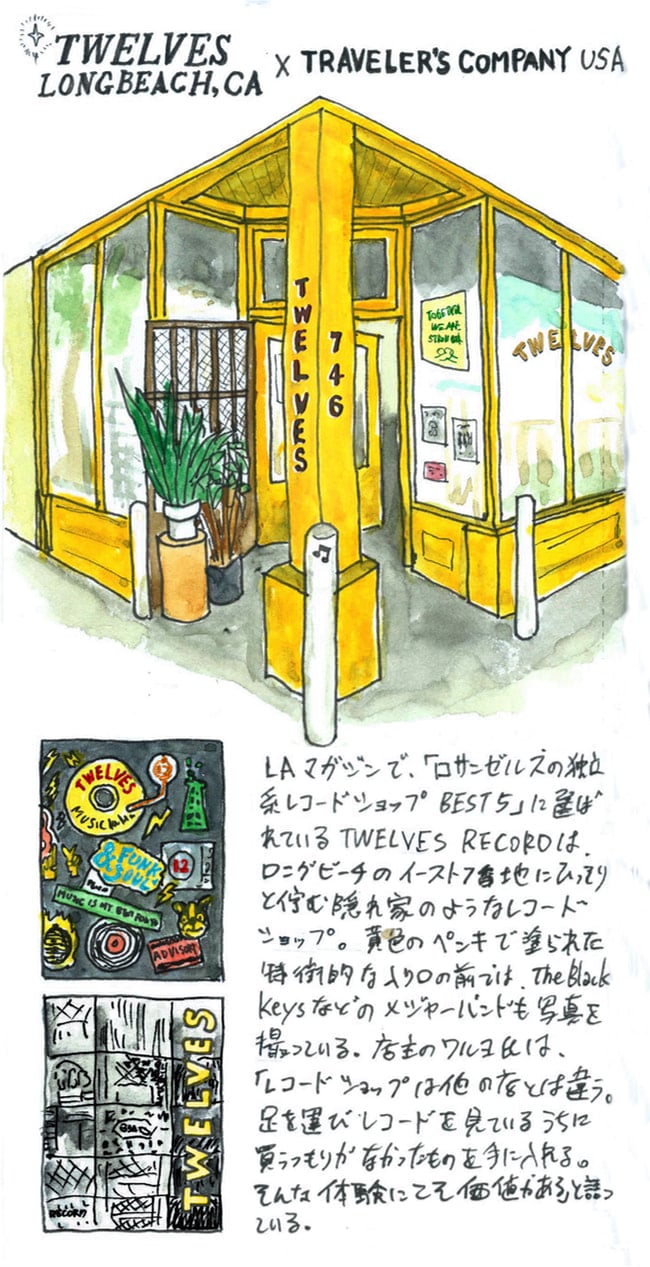 TWELVES
LONGBEACH, CA
X TRAVELER'S COMPANY USA
TWELVES
746
TOGETHER
WE ARE
STRONGER
TWELVES
TWELVES
MUSIC
12
& FUNK
& SOUL
12
MUSIC IS MY
ADVISORY
TWELVES
RECORD
LAマガジンで、「ロサンゼルスの独立
系レコードショップ BEST5」に選ば
れている TWELVES RECORDは、
ロングビーチのイースト7番地にひっそり
と佇む隠れ家のようなレコード
ショップ。黄色のペンキで塗られた
特徴的な入り口の前では、The Black
Keysなどのメジャーバンドも写真を
撮っている。店主のワルヨ氏は、
「レコードショップは他の店とは違う。
足を運びレコードを見ているうちに
買うつもりがなかったものを手に入れる。
そんな体験にこそ価値がある」と語っ
ている。